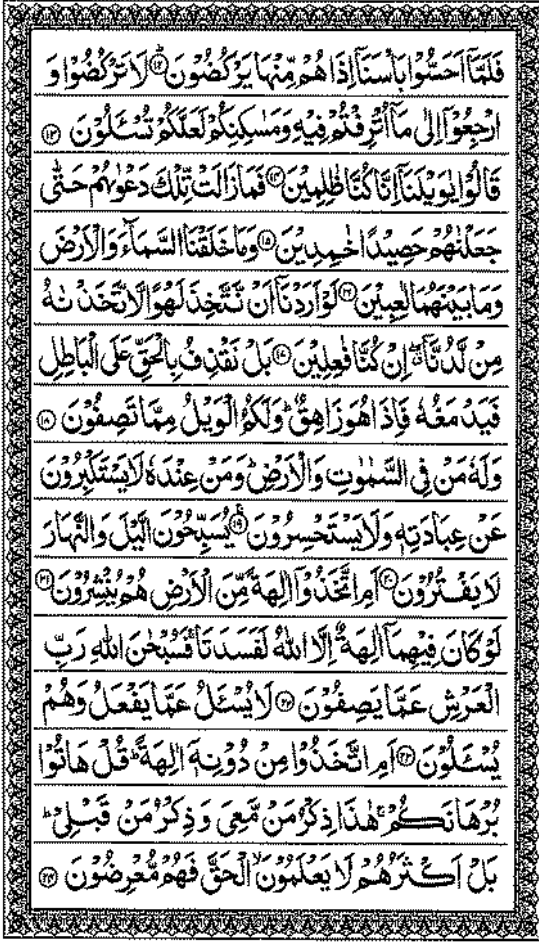 فَلَمَّآ اَحَسُّوْا بَاْسَنَآ اِذَا هُمْ مِّنْهَا يَرْكُضُوْنَ ؕ۝۱۲ لَا تَرْكُضُوْا وَ
ارْجِعُوْۤا اِلٰى مَاۤ اُتْرِفْتُمْ فِيْهِ وَمَسٰكِنِكُمْ لَعَلَّكُمْ تُسْـَٔلُوْنَ ۝۱۳
قَالُوْا يٰوَيْلَنَاۤ اِنَّا كُنَّا ظٰلِمِيْنَ ۝۱۴ فَمَا زَالَتْ تِّلْكَ دَعْوٰىهُمْ حَتّٰى
جَعَلْنٰهُمْ حَصِيْدًا خٰمِدِيْنَ ۝۱۵ وَمَا خَلَقْنَا السَّمَآءَ وَالْاَرْضَ
وَمَا بَيْنَهُمَا لٰعِبِيْنَ ۝۱۶ لَوْ اَرَدْنَاۤ اَنْ نَّتَّخِذَ لَهْوًا لَّاتَّخَذْنٰهُ
مِنْ لَّدُنَّاۤ ۖ اِنْ كُنَّا فٰعِلِيْنَ ۝۱۷ بَلْ نَقْذِفُ بِالْحَقِّ عَلَى الْبَاطِلِ
فَيَدْمَغُهٗ فَاِذَا هُوَ زَاهِقٌ ؕ وَلَكُمُ الْوَيْلُ مِمَّا تَصِفُوْنَ ۝۱۸
وَلَهٗ مَنْ فِى السَّمٰوٰتِ وَالْاَرْضِ ؕ وَمَنْ عِنْدَهٗ لَا يَسْتَكْبِرُوْنَ
عَنْ عِبَادَتِهٖ وَلَا يَسْتَحْسِرُوْنَ ۚ۝۱۹ يُسَبِّحُوْنَ الَّيْلَ وَالنَّهَارَ
لَا يَفْتُرُوْنَ ۝۲۰ اَمِ اتَّخَذُوْۤا اٰلِهَةً مِّنَ الْاَرْضِ هُمْ يُنْشِرُوْنَ ۝۲۱
لَوْ كَانَ فِيْهِمَاۤ اٰلِهَةٌ اِلَّا اللّٰهُ لَفَسَدَتَا ۚ فَسُبْحٰنَ اللّٰهِ رَبِّ
الْعَرْشِ عَمَّا يَصِفُوْنَ ۝۲۲ لَا يُسْـَٔلُ عَمَّا يَفْعَلُ وَهُمْ
يُسْـَٔلُوْنَ ۝۲۳ اَمِ اتَّخَذُوْا مِنْ دُوْنِهٖۤ اٰلِهَةً ؕ قُلْ هَاتُوْا
بُرْهَانَكُمْ ۚ هٰذَا ذِكْرُ مَنْ مَّعِىَ وَذِكْرُ مَنْ قَبْلِىْ ؕ
بَلْ اَكْثَرُهُمْ لَا يَعْلَمُوْنَ ۙ الْحَقَّ فَهُمْ مُّعْرِضُوْنَ ۝۲۴